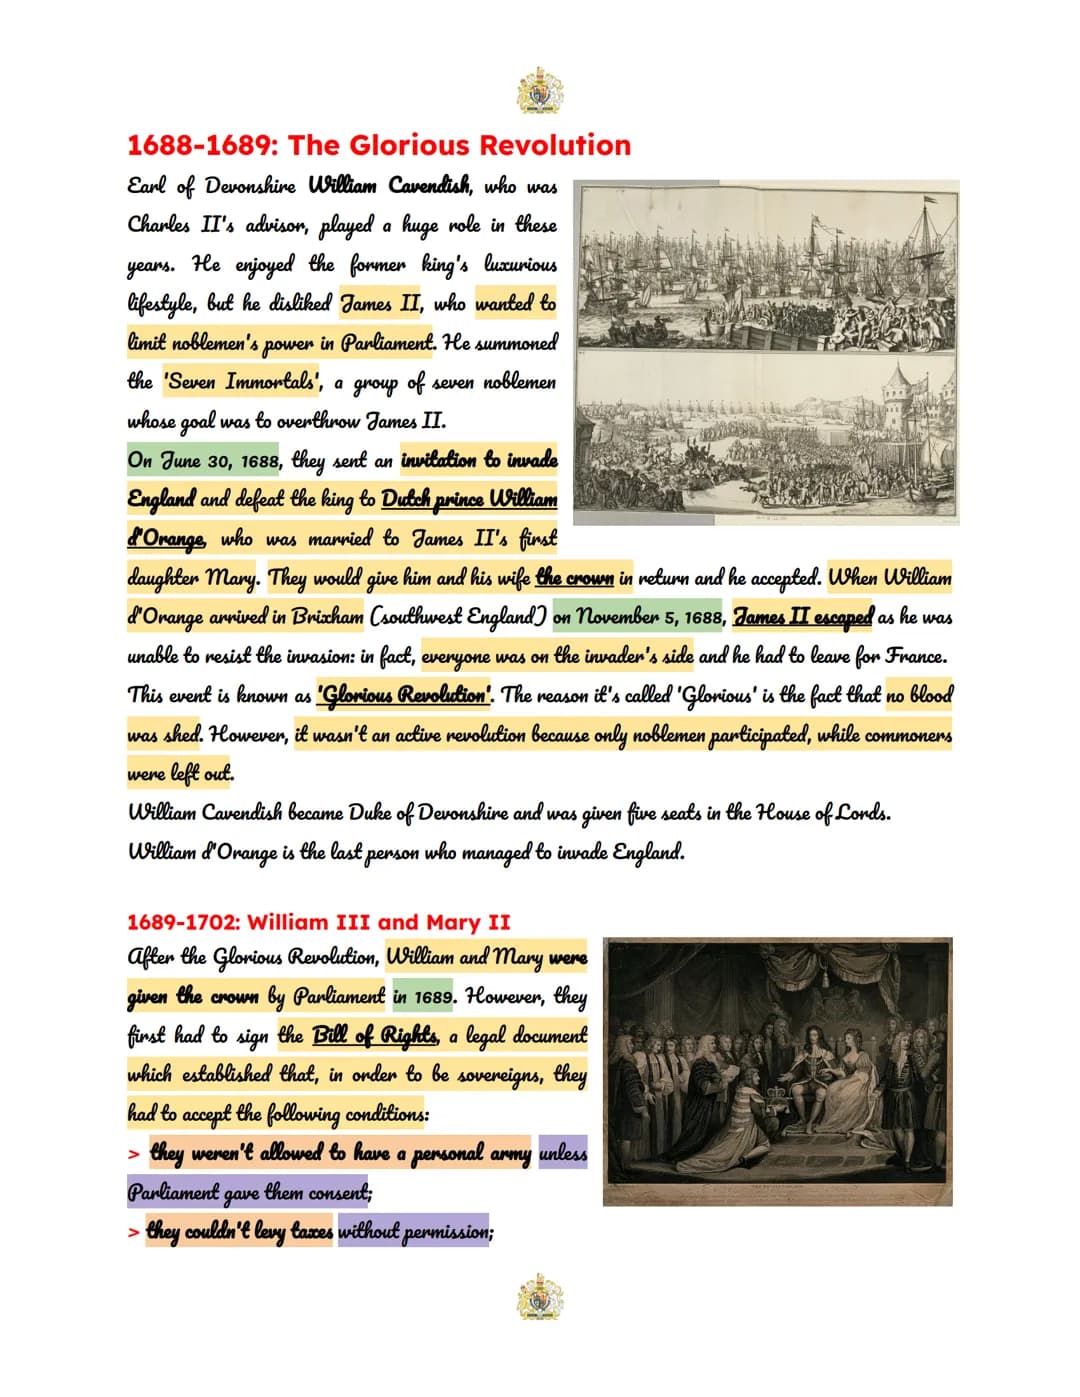 1688-1689: The Glorious Revolution
Earl of Devonshire William Cavendish, who was
Charles II's advisor, played a huge role in these
years. He enjoyed the former king's luxurious
lifestyle, but he disliked James II, who wanted to
limit noblemen's power in Parliament. He summoned
the 'Seven Immortals', a group of seven noblemen
whose goal was to overthrow James II.
On June 30, 1688, they sent an invitation to invade
England and defeat the king to Dutch prince William
d'Orange, who was married to James II's first
daughter Mary. They would give him and his wife the crown in return and he accepted. When William
d'Orange arrived in Brixham (southwest England) on November 5, 1688, James II escaped as he was
unable to resist the invasion: in fact, everyone was on the invader's side and he had to leave for France.
This event is known as 'Glorious Revolution'. The reason it's called 'Glorious' is the fact that no blood
was shed. However, it wasn't an active revolution because only noblemen participated, while commoners
were left out.
William Cavendish became Duke of Devonshire and was given five seats in the House of Lords.
William d'Orange is the last person who managed to invade England.
1689-1702: William III and Mary II
After the Glorious Revolution, William and Mary were
given the crown by Parliament in 1689. However, they
first had to sign the Bill of Rights, a legal document
which established that, in order to be sovereigns, they
had to accept the following conditions:
> they weren't allowed to have a personal army unless
Parliament gave them consent;
> they couldn't levy taxes without permission;